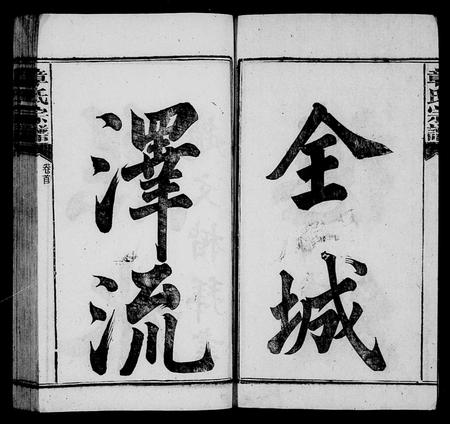 章氏宗譜
全城
澤流
章氏宗譜
卷首